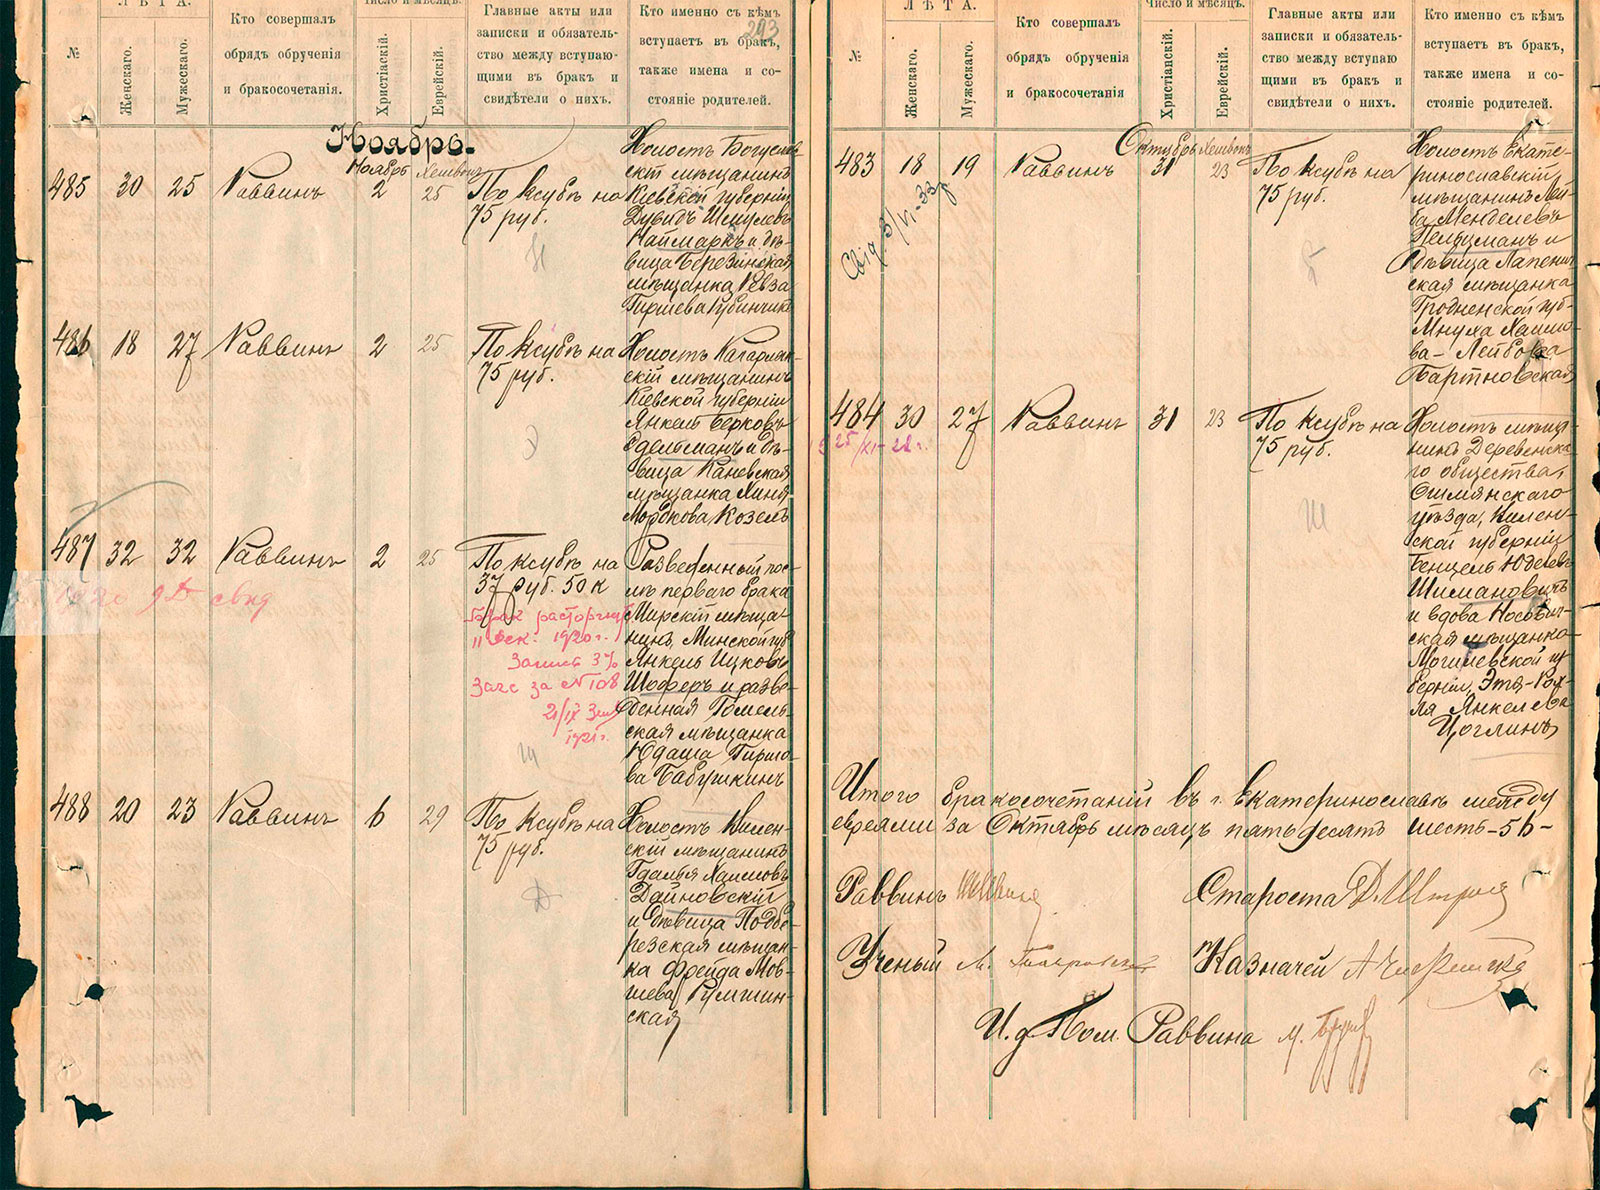 ЛѢТА.
Число и мѣсяцъ.
№
Женскаго.
Мужескаго.
Кто совершалъ
обрядъ обрученія
и бракосочетанія.
Христіаскій.
Еврейскій.
Главные акты или
записки и обязатель-
ство между вступаю-
щими въ бракъ и
свидѣтели о нихъ.
Кто именно съ кѣмъ
вступаетъ въ бракъ,
также имена и со-
стояніе родителей.
293
Ноябрь.
Ноябрь Хешвонъ
485 30 25 Раввинъ 2 25 По Ксубѣ на
75 руб.
Холостъ Богуслав-
скій мѣщанинъ
Кіевской губерніи
Дувидъ Шмулевъ
Наймаркъ и дѣ-
вица Березинская
мѣщанка Ревза
Гиршева Рубинчикъ
Н
486 18 27 Раввинъ 2 25 По Ксубѣ на
75 руб.
Холостъ Кагарлак-
скій мѣщанинъ
Кіевской губерніи
Янкель Берковъ
Едельманъ и дѣ-
вица Каневская
мѣщанка Хиня
Мордкова Козелъ
Э
487 32 32 Раввинъ 2 25 По Ксубѣ на
37 руб. 50 к
1920 свид
Бракъ расторгнутъ
11 Дек. 1920 г.
Загс за № 108
1921 г.
Разведенный пос-
лѣ перваго брака
Мирскій мѣща-
нинъ Минской губ
Янкель Ицковъ
Шоферъ и разве-
денная Гомель-
ская мѣщанка
Юдаша Гирше-
ва Бабушкинъ
Ш
488 20 23 Раввинъ 6 29 По Ксубѣ на
75 руб.
Холостъ Вилен-
скій мѣщанинъ
Гдалья Хаимовъ
Дайновскій
и дѣвица Подбе-
резская мѣщан-
ка Фрейда Мов-
шева Румшин-
ская
Д
ЛѢТА.
Число и мѣсяцъ.
№
Женскаго.
Мужескаго.
Кто совершалъ
обрядъ обрученія
и бракосочетанія
Христіанскій.
Еврейскій.
Главные акты или
записки и обязатель-
ство между вступаю
щими въ бракъ и
свидѣтели о нихъ.
Кто именно съ кѣмъ
вступаетъ въ бракъ,
также имена и со-
стояніе родителей.
Октябрь Хешвонъ
483 18 19 Раввинъ 31 23 По Ксубѣ на
75 руб.
Свід 3/VI-33
Холостъ Екате-
ринославскій
мѣщанинъ Лей-
ба Менделевъ
Пельцманъ и
дѣвица Лапенич
ская мѣщанка
Гродненской губ-
Мнуха Хаимо-
ва-Лейбова
Бартновская
484 30 27 Раввинъ 31 23 По Ксубѣ на
75 руб.
25/XI-22 г.
Холостъ мѣща-
нинъ Деревенска-
го общества,
Ошмянскаго
уѣзда, Вилен-
ской губерніи
Бенцель Юделевъ
Шимановичъ
и вдова Носович-
ская мѣщанка
Могилевской гу-
берніи, Этя-Рох-
ля Янкелева
Цоглинъ
Ш
Итого бракосочетаній въ г. Екатеринославѣ между
евреями за Октябрь мѣсяцъ пятьдесятъ шесть-56-
Раввинъ
Староста Д.
Ученый М.
Казначей А
И. д. Пом. Раввина М.